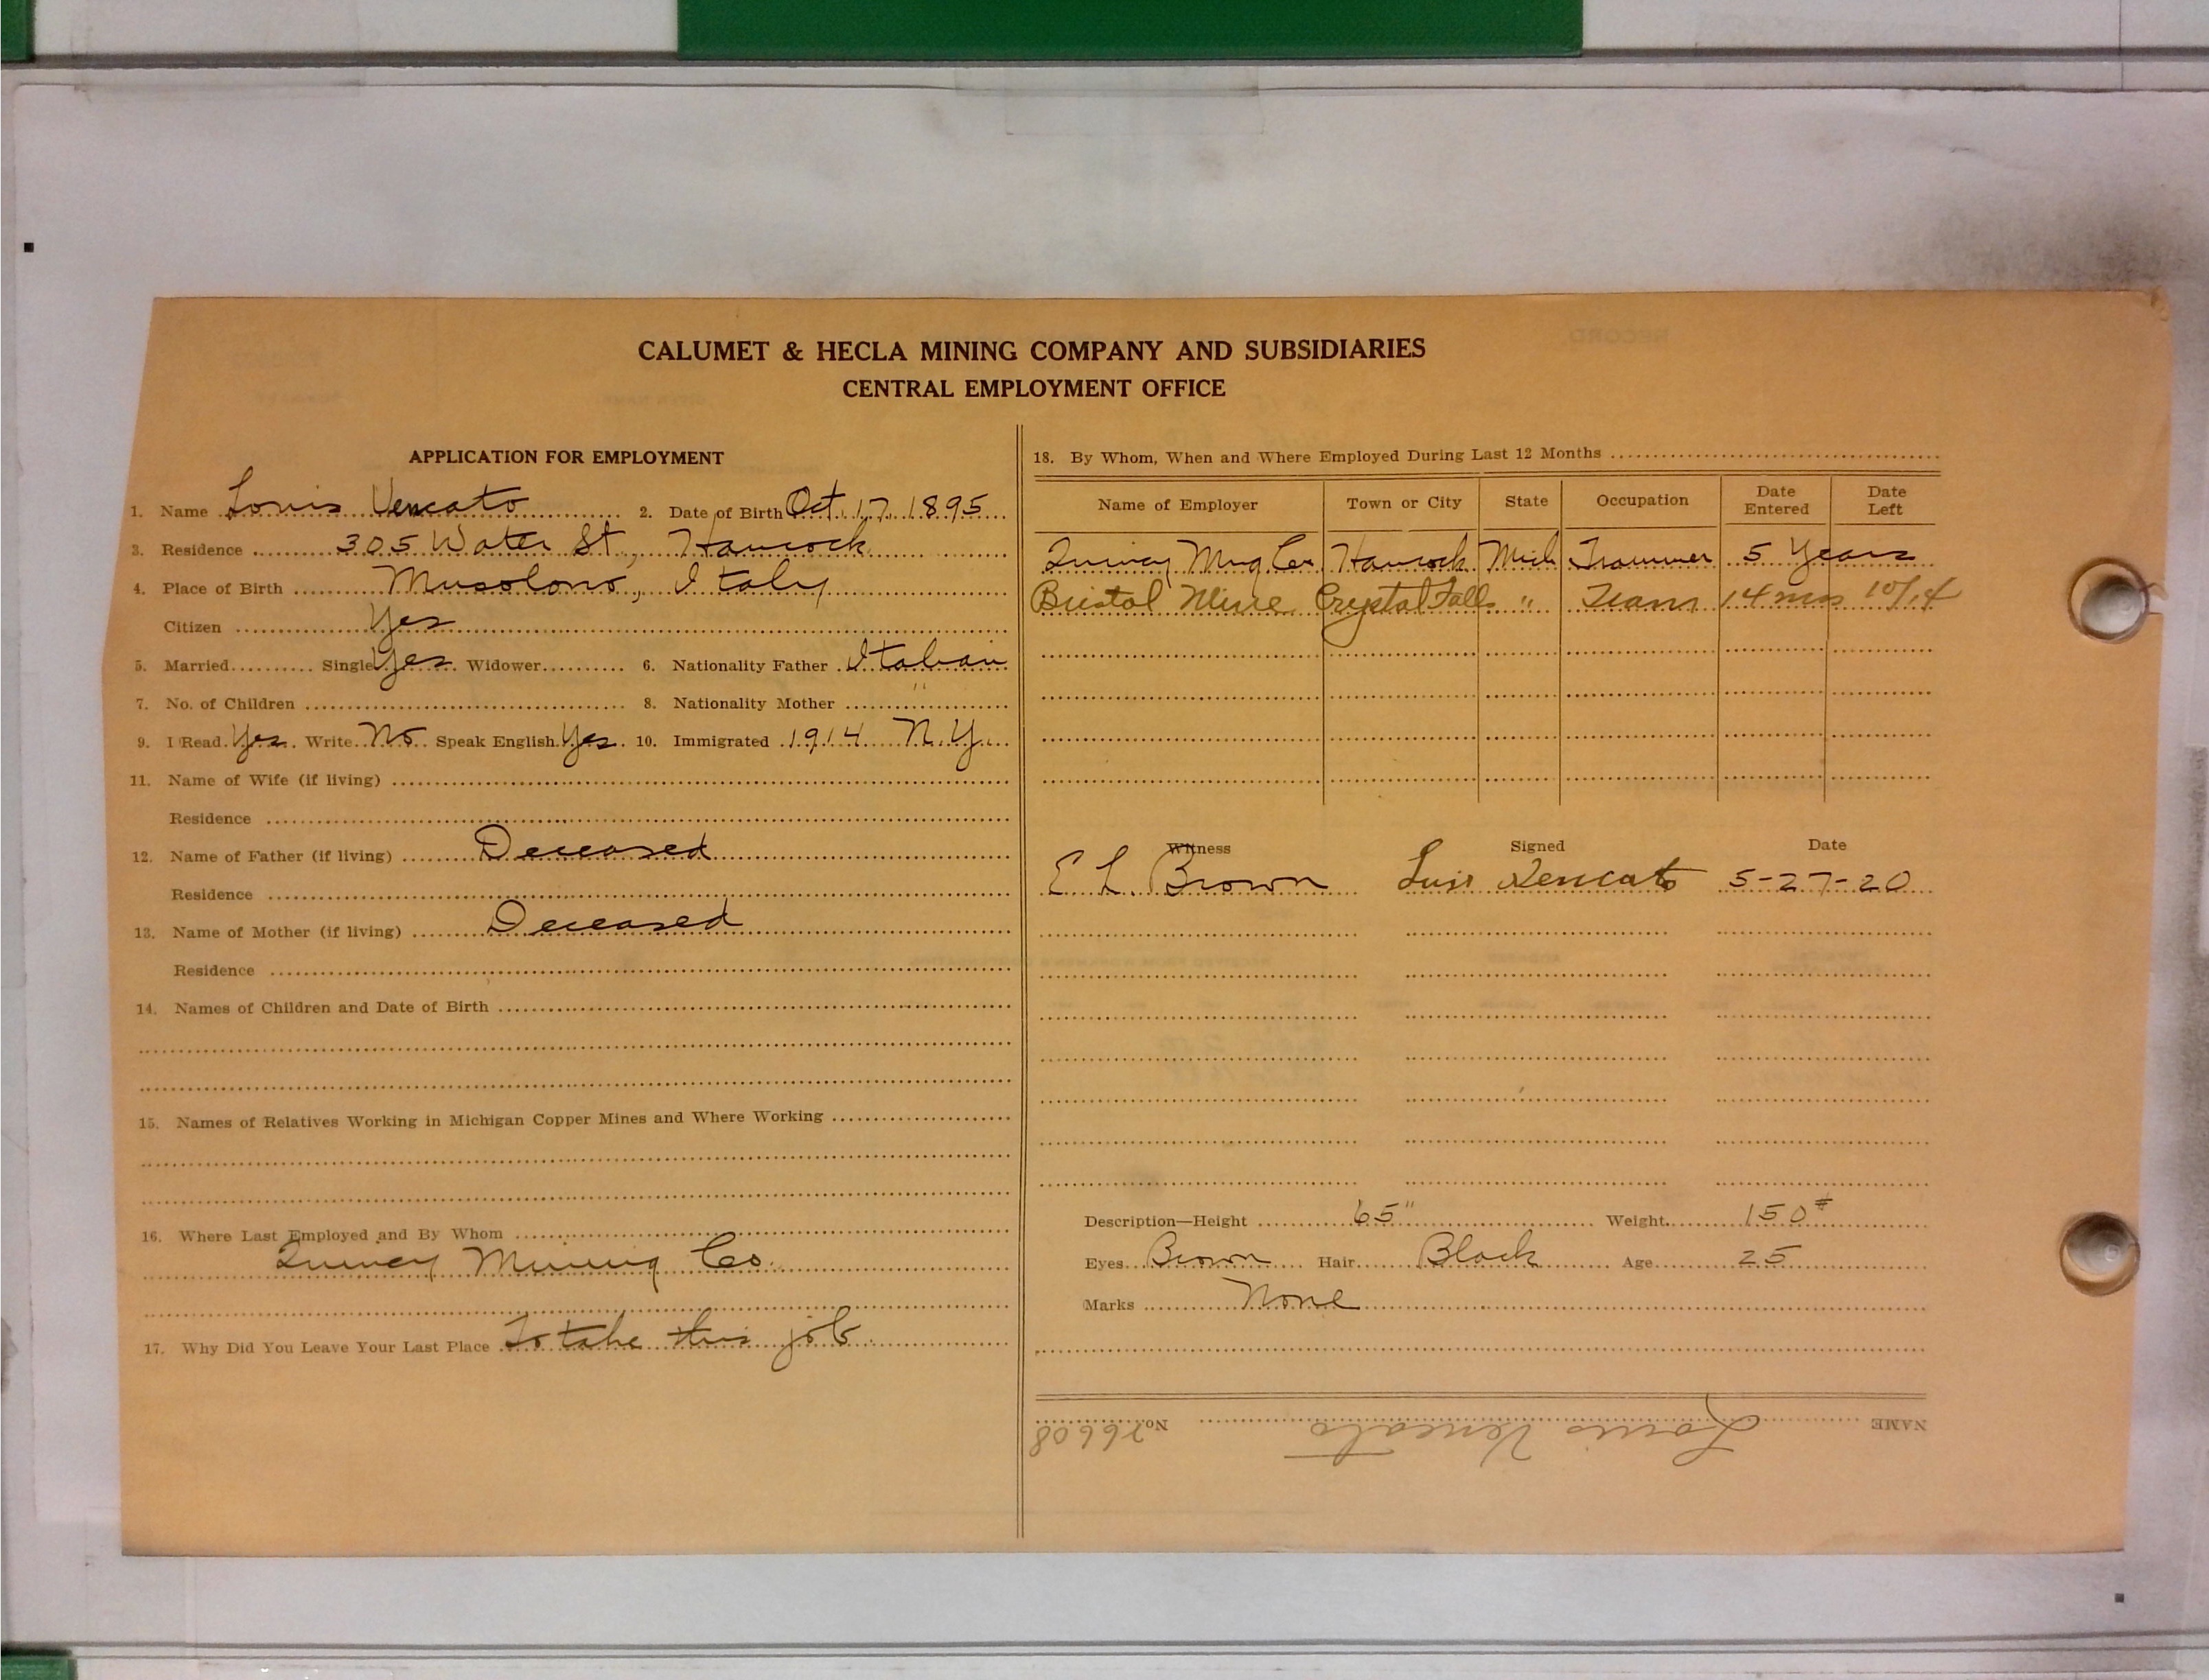 CALUMET & HECLA MINING COMPANY AND SUBSIDIARIES
CENTRAL EMPLOYMENT OFFICE
APPLICATION FOR EMPLOYMENT
1. Name Louis Vencato 2. Date of Birth Oct. 17. 1895
3. Residence 305 Water St, Hancock
4. Place of Birth Musolono, Italy
Citizen Yes
5. Married Single Yes Widower 6. Nationality Father Italian
7. No. of Children 8. Nationality Mother "
9. I Read Yes Write No Speak English Yes 10. Immigrated 1914 N.Y.
11. Name of Wife (if living)
Residence
12. Name of Father (if living) Deceased
Residence
13. Name of Mother (if living) Deceased
Residence
14. Names of Children and Date of Birth
15. Names of Relatives Working in Michigan Copper Mines and Where Working
16. Where Last Employed and By Whom
Quincy Mining Co.
17. Why Did You Leave Your Last Place To take this job
18. By Whom, When and Where Employed During Last 12 Months
Name of Employer Town or City State Occupation Date Entered Date Left
Quincy Mng Co. Hancock Mich Trammer 5 Years
Bristol Mine Crystal Falls " Tram 14 mos 10/14
Witness Signed Date
E L. Brown Luis Vencato 5-27-20
Description—Height 65" Weight 150#
Eyes Brown Hair Black Age 25
Marks None
NAME Louis Vencato No. 26608